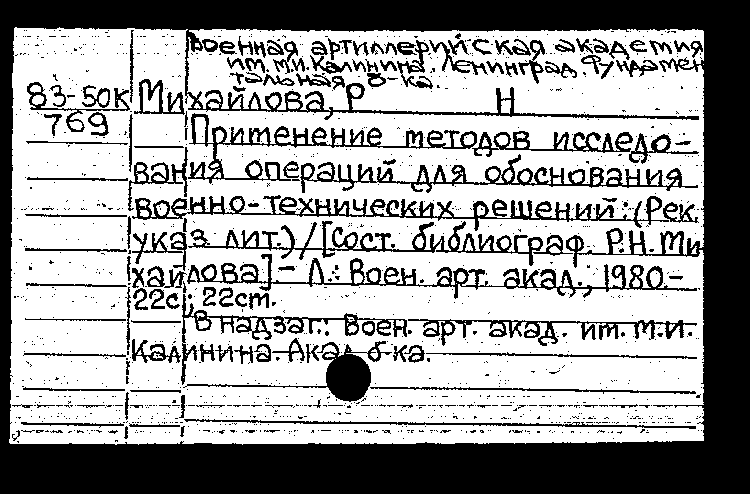 Военная артиллерийская академия
им. М.И. Калинина. Ленинград. Фундамен
тальная б-ка.
83-50К Михайлова, Р Н
769 Применение методов исследо-
вания операций для обоснования
военно-технических решений: (Рек.
указ. лит.) / [Сост. библиограф. Р.Н. Ми
хайлова]. - Л.: Воен. арт. акад., 1980. -
22с.; 22см.
В надзаг.: Воен. арт. акад. им. М.И.
Калинина. Акад. б-ка.